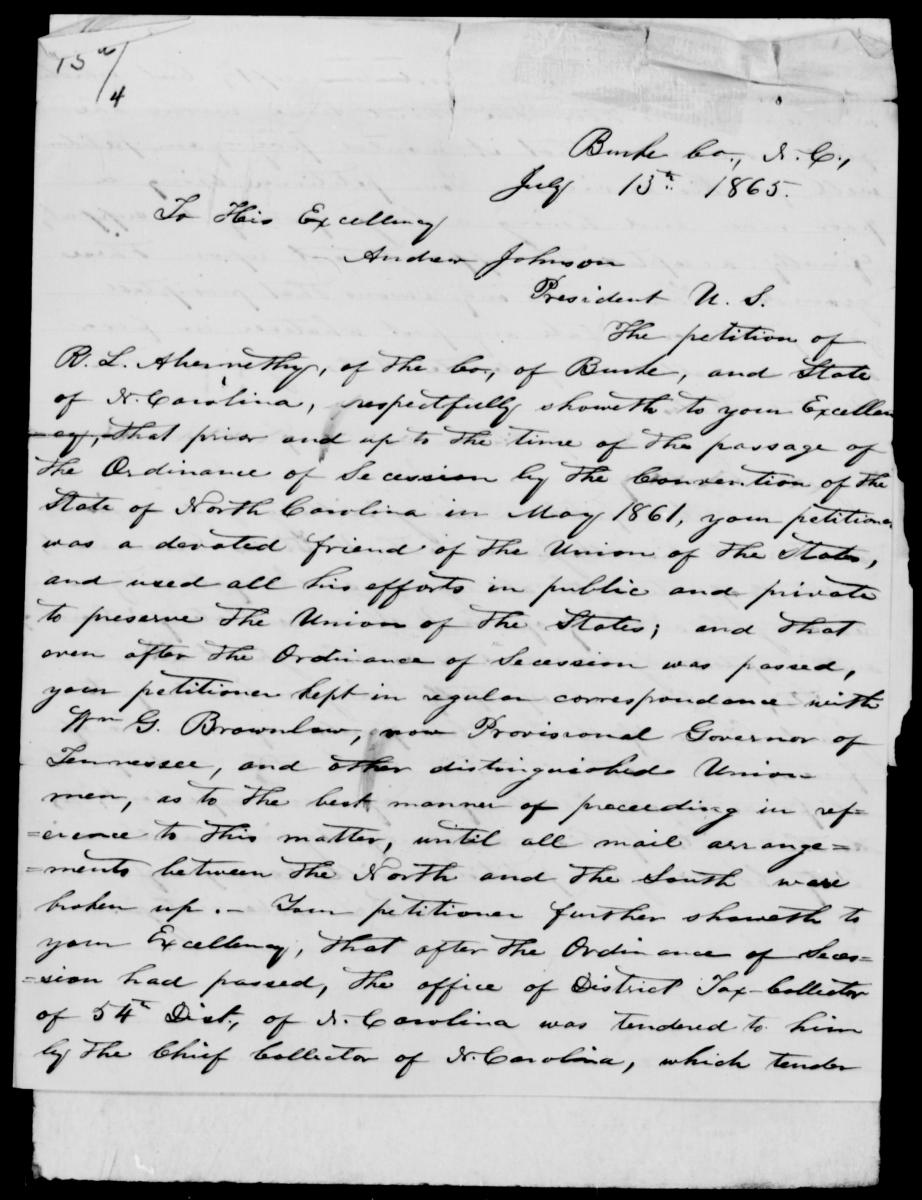 15th/4
Burke Co., N.C.,
July 15th. 1865.
To His Excellency
Andrew Johnson
President U. S.
The petition of
R. L. Abernethy, of the Co., of Burke, and State
of N. Carolina, respectfully showeth to your Excellen
cy, that prior and up to the time of the passage of
the Ordinance of Secession by the Convention of the
State of North Carolina in May 1861, your petitioner
was a devoted friend of the Union of the States,
and used all his efforts in public and private
to preserve the Union of the States; and that
even after the Ordinance of Secession was passed,
your petitioner kept in regular correspondence with
Wm G. Brownlow, now Provisional Governor of
Tennessee, and other distinguished Union
men, as to the best manner of proceeding in ref=
=erence to this matter, until all mail arrange=
=ments between the North and the South were
broken up. – Your petitioner further showeth to
your Excellency, that after the Ordinance of Seces=
=sion had passed, the office of District Tax-Collector
of 54th Dist., of N. Carolina was tendered to him
by the Chief Collector of N. Carolina, which tender